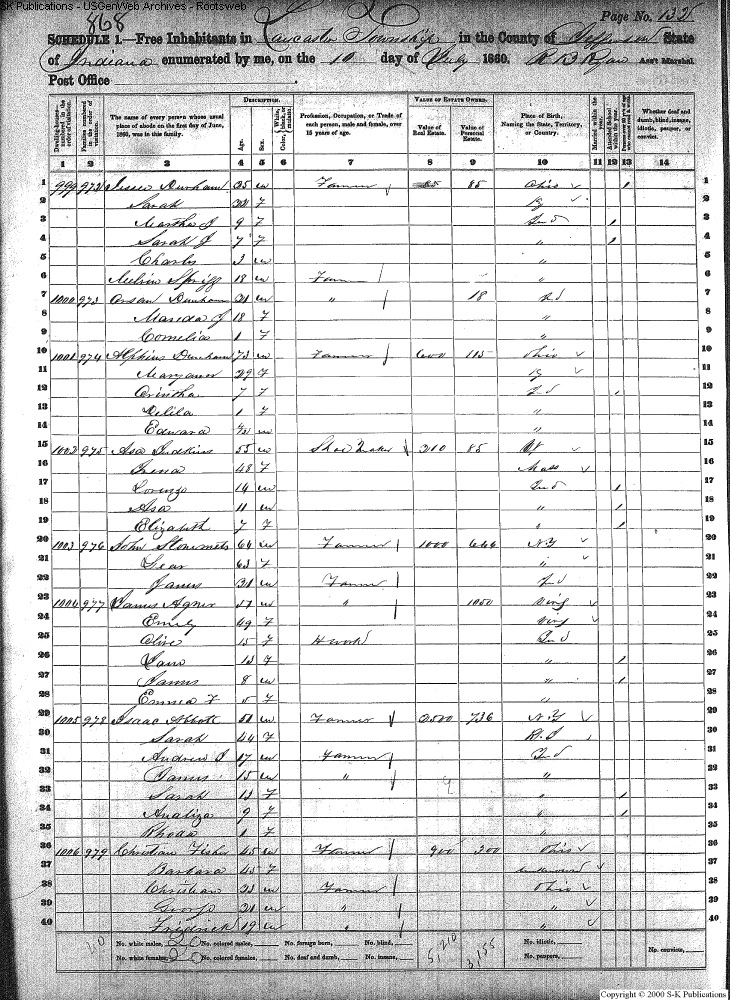 S-K Publications - USGenWeb Archives - Rootsweb
868
Page No. 132
SCHEDULE 1.—Free Inhabitants in Lancaster Township in the County of Jefferson State
of Indiana enumerated by me, on the 10 day of July 1860. R D Ryan Ass't Marshal.
Post Office
DESCRIPTION.
VALUE OF ESTATE OWNED.
Dwelling-houses numbered in the order of visitation.
Families numbered in the order of visitation.
The name of every person whose usual place of abode on the first day of June, 1860, was in this family.
Age.
Sex.
Color, White, black, or mulatto.
Profession, Occupation, or Trade of each person, male and female, over 15 years of age.
Value of Real Estate.
Value of Personal Estate.
Place of Birth, Naming the State, Territory, or Country.
Married within the year.
Attended School within the year.
Whether deaf and dumb, blind, insane, idiotic, pauper, or convict.
1 2 3 4 5 6 7 8 9 10 11 12 13 14
1 999 972 Jesse Dunham 35 m Farmer 85 Ohio / 1
2 Sarah f Ky 2
3 Martha J 9 f Ind / 3
4 Sarah J 7 f " / 4
5 Charls 3 m " 5
6 Melvin Sprigg 18 m Farm " 6
7 1000 973 Dunham 21 m " 18 Ind 7
8 J 18 f " 8
9 Cornelia 1 f " 9
10 1001 974 Dunham 73 m Farmer 600 115 Ohio 10
11 29 f Ky 11
12 7 f Ind / 12
13 Delila 1 f " 13
14 Edward m " 14
15 1002 975 Asa Judkins 55 m Shoe Maker 310 85 15
16 48 f Mass 16
17 Lorenzo 14 m Ind / 17
18 Asa 11 m " / 18
19 Elizabeth 7 f " / 19
20 1003 976 John Stonemets 64 m Farmer 1000 N.Y 20
21 63 f " 21
22 James 31 m Farmer Ind 22
23 1004 977 James Agner m " 1050 Virg 23
24 Emily 49 f Virg 24
25 Olive 15 f H work Ind 25
26 13 f " / 26
27 James 8 m " / 27
28 Emma F 5 f " 28
29 1005 978 Isaac Abbott m Farmer 2500 736 N.Y 29
30 Sarah 44 f 30
31 Andrew J 17 m Farmer Ind 31
32 James 15 m " " 32
33 Sarah 13 f " / 33
34 Analiza 9 f " / 34
35 Rhoda 1 f " 35
36 1006 979 Christian Fisher 45 m Farmer 900 300 Ohio 36
37 Barbara 45 f unknown 37
38 Christian m Farmer Ohio 38
39 George 21 m " " 39
40 Fredrick 19 m " " 40
No. white males, 20 No. colored males, No. foreign born, No. blind, No. idiotic, No. convicts,
No. white females, 20 No. colored females, No. deaf and dumb, No. insane, No. paupers,
3,155
Copyright © 2000 S-K Publications